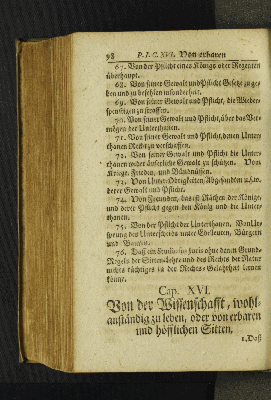 98 P. I. C. XVI. Von erbaren
67. Von der Pflicht eines Königs oder Regenten
überhaupt.
68. Von seiner Gewalt und Pflicht Gesetze zu ge-
ben und zu befehlen insonderheit.
69. Von seiner Gewalt und Pflicht, die Wieder-
spenstigen zu straffen.
70. Von seiner Gewalt und Pflicht, über das Ver-
mögen der Unterthanen.
71. Von seiner Gewalt und Pflicht, denen Unter-
thanen Recht zu verschaffen.
72. Von seiner Gewalt und Pflicht die Unter-
thanen wider äuserliche Gewalt zu schützen. Vom
Kriege, Frieden, und Bündnüssen.
73. Von Unter-Obrigkeiten, Abgesandten u.s.w.
derer Gewalt und Pflicht.
74. Von Freunden, das ist Räthen der Könige,
und derer Pflicht gegen den König und die Unter-
thanen.
75. Von der Pflicht der Unterthanen. Von Ur-
sprung des Unterscheids unter Edelleuten, Bürgern
und Bauren.
76. Daß ein Studiosus Juris ohne denen Grund-
Regeln der Sitten-Lehre und des Rechts der Natur
nichts tüchtiges in der Rechts-Gelahrheit lernen
könne.
Cap. XVI.
Von der Wissenschafft, wohl-
anständig zu leben, oder von erbaren
und höfflichen Sitten.
1. Daß